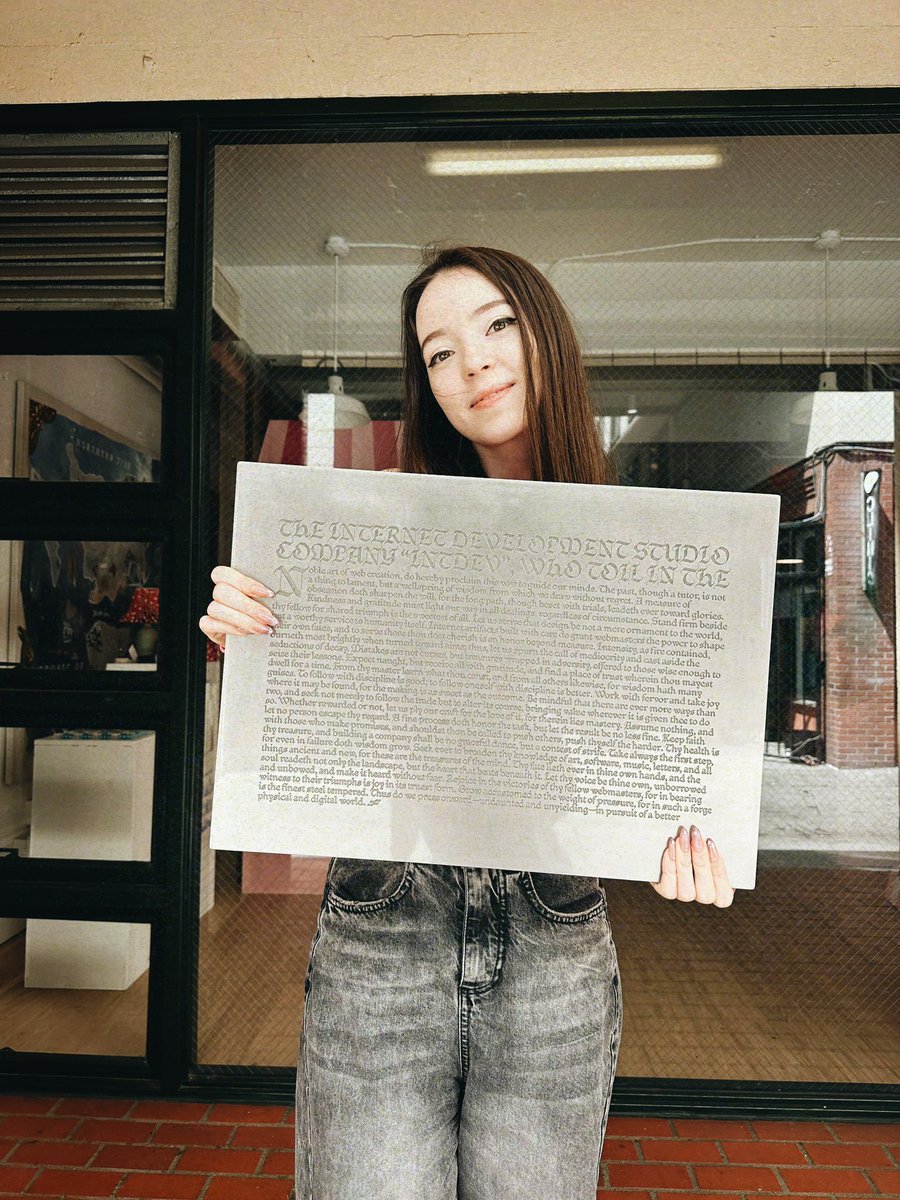 NORTHERN
THE INTERNET DEVELOPMENT STUDIO
COMPANY “INTDEV”, WHO TOIL IN THE
Noble art of web creation, do hereby proclaim this vow to guide our minds. The past, though a tutor, is not
a thing to lament, but a wellspring of wisdom from which we draw without regret. A measure of
obsession doth sharpen the will, for the long path, though beset with trials, leadeth ever toward glories.
Kindness and gratitude must light our way in all things, regardless of circumstance. Stand firm beside
thy fellow, for shared triumph is the noblest of all. Let us ensure that design be not a mere ornament to the world,
but a worthy service to humanity itself. Internet artifacts built with care do grant webmasters the power to shape
their own fates, and to serve those thou dost cherish is an honor beyond measure. Intensity, as fire contained,
burneth most brightly when turned toward aims; thus, let us spurn the call of mediocrity and cast aside the
seductions of decay. Mistakes are not curses, but treasures wrapped in adversity, offered to those wise enough to
seize their lessons. Expect naught, but embrace all with gratitude, and find a place of trust wherein thou mayest
dwell for a time. From thy master learn what thou canst, and from all others likewise, for wisdom hath many
guises. To follow with discipline is good; to follow oneself with discipline is better. Work with fervor and take joy
where it may be found, for the making is as sweet as the made. Be mindful that there are ever more ways than
two, and seek not merely to follow the trade but to alter its course, bringing value wherever it is given thee to do
so. Whether rewarded or not, let us ply our craft for the love of it, for therein lies mastery. Assume nothing, and
let no person escape thy regard. A fine process doth honor the task, but let the result be no less fine. Keep faith
with those who make promises, and shouldst thou be called to push others, push thyself the harder. Thy health is
thy treasure, and building a company shall be no graceful dance, but a contest of strife. Take always the first step,
for even in failure doth wisdom grow. Seek ever to enrich thy knowledge of art, software, music, letters, and all
things ancient and new, for these are the treasures of the mind. Thy fate lieth ever in thine own hands, and the
soul readeth not only the landscape, but the heart that beats beneath it. Let thy voice be thine own, unborrowed
and unbowed, and make it heard without fear. Rejoice in the victories of thy fellow webmasters, for in bearing
witness to their triumphs is joy in its truest form. Grow accustomed to the weight of pressure, for in such a forge
is the finest steel tempered. Thus do we press onward—undaunted and unyielding—in pursuit of a better
physical and digital world.